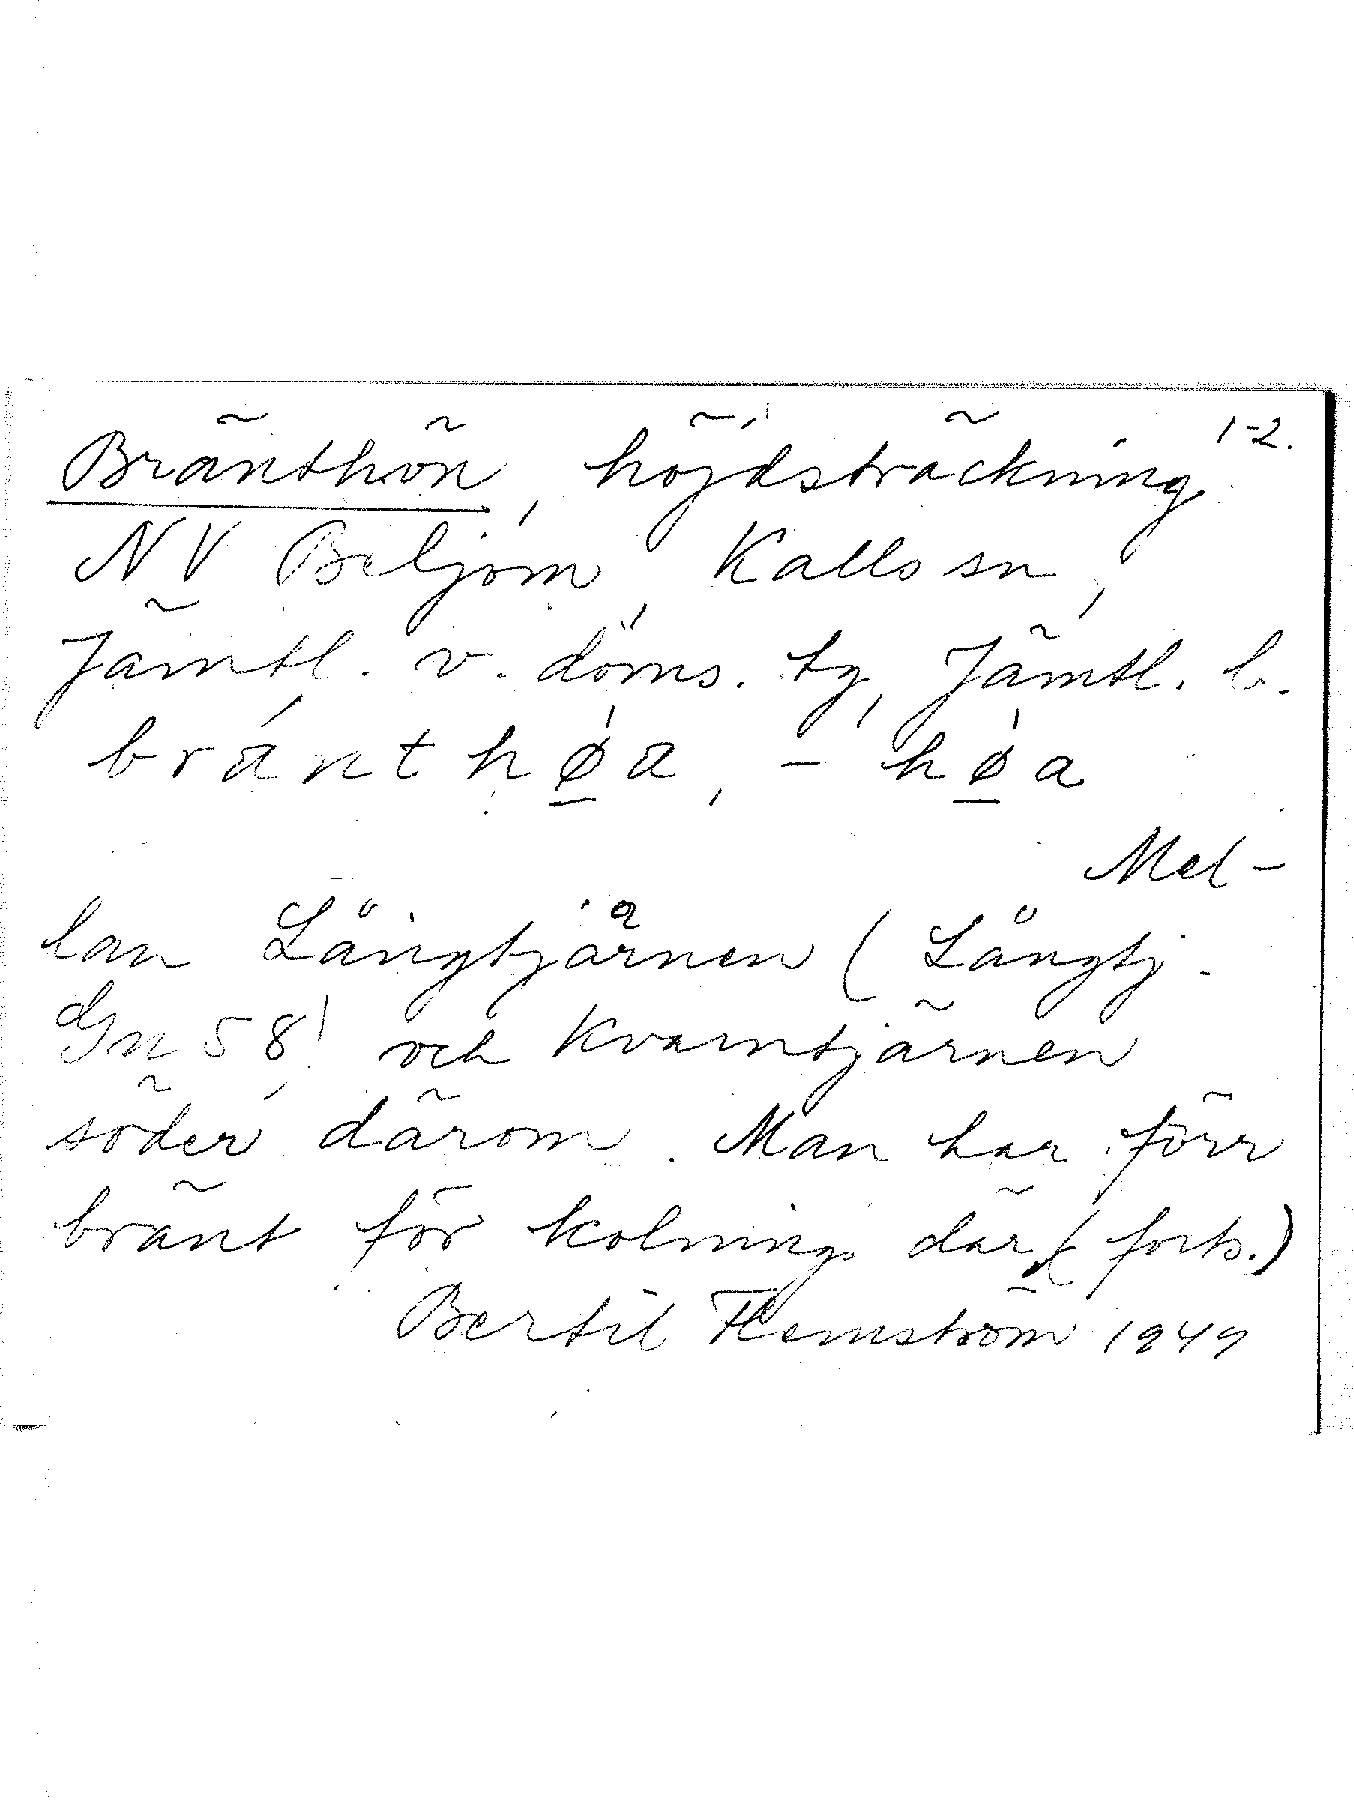 1-2.
Bränthön, höjdsträckning
NV Beljom, Kalls sn,
Jämtl. v. doms. tg, Jämtl. l.
bránthø̲̀a, - hø̲̀a
Mel-
lan Långtjärnen (Långtj.
Gn 58) och Kvarntjärnen
söder därom. Man har förr
bränt för kolning där (forts.)
Bertil Flemström 1949